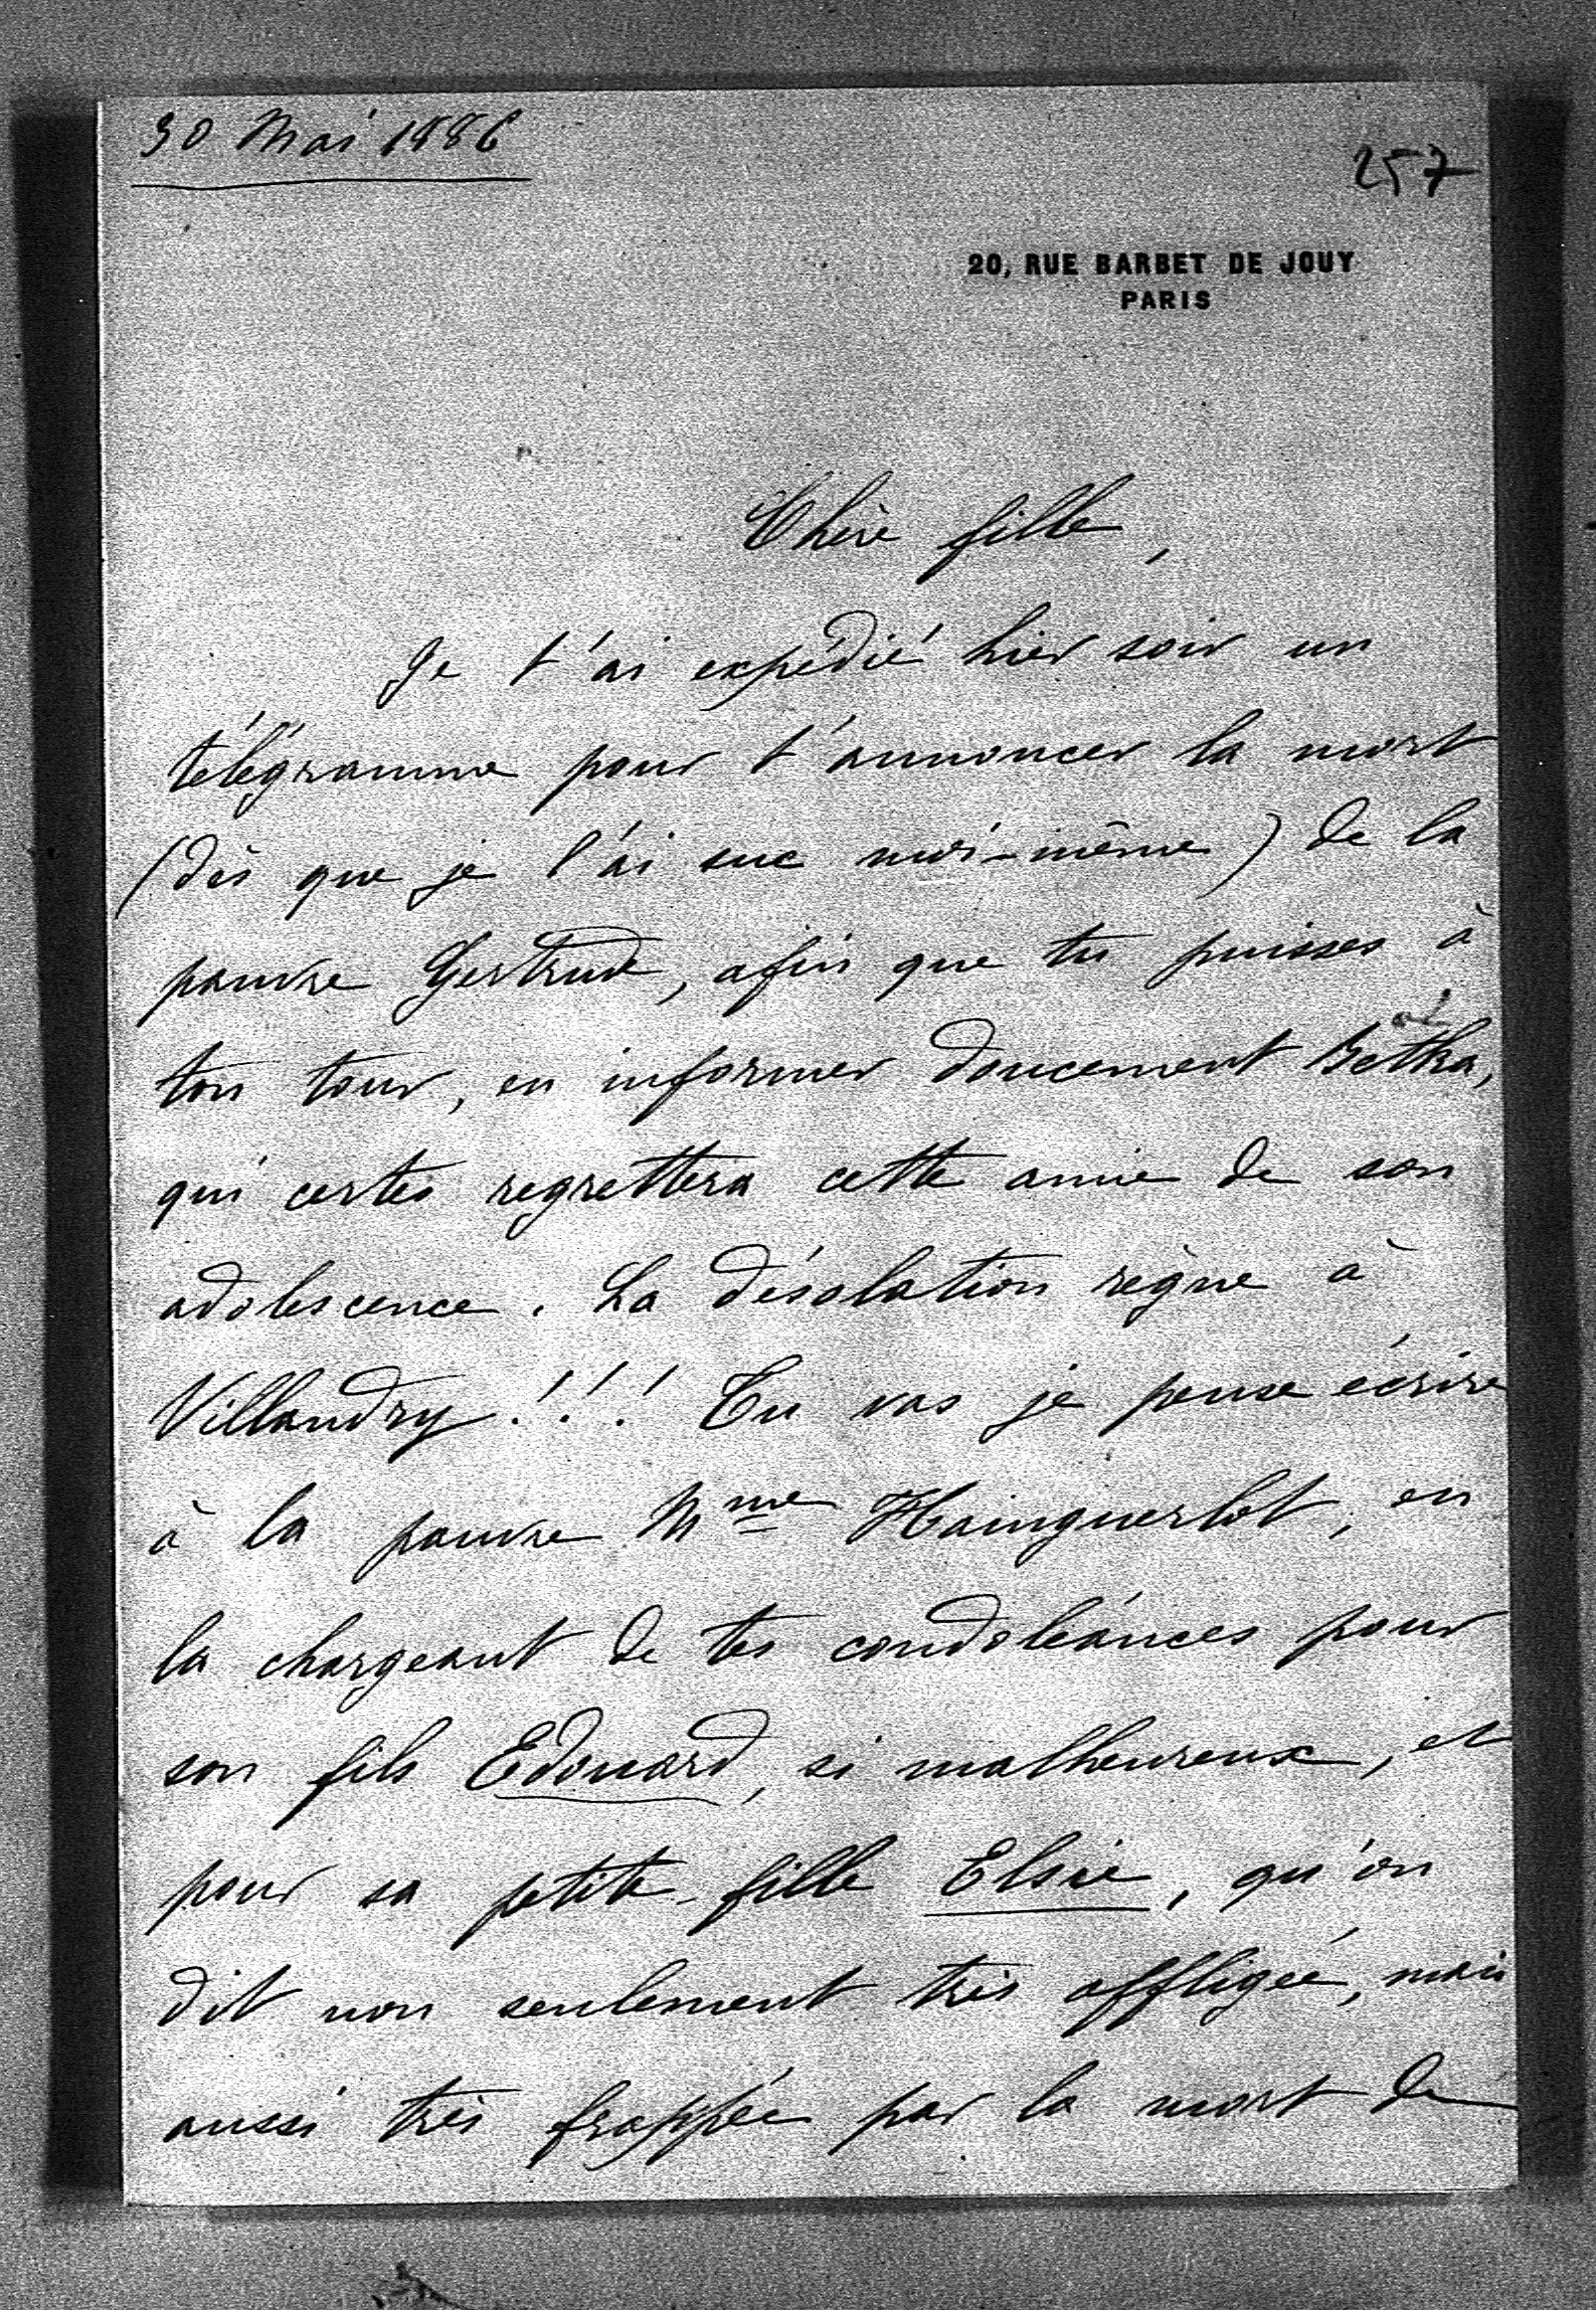 30 Mai 1886
257
20, RUE BARBET DE JOUY
PARIS
Chère fille,
Je t'ai expédié hier soir un
télégramme pour t'annoncer la mort
(dès que je l'ai sue moi-même) de la
pauvre Gertrude, afin que tu puisses à
ton tour, en informer doucement Betka,
qui certes regrettera cette amie de son
adolescence. La désolation règne à
Villandry!!! Tu vas je pense écrire
à la pauvre Mme Hainguerlot, en
la chargeant de tes condoléances pour
son fils Edouard, si malheureux, et
pour sa petite-fille Elsie, qu'on
dit non seulement très affligée, mais
aussi très frappée par la mort de